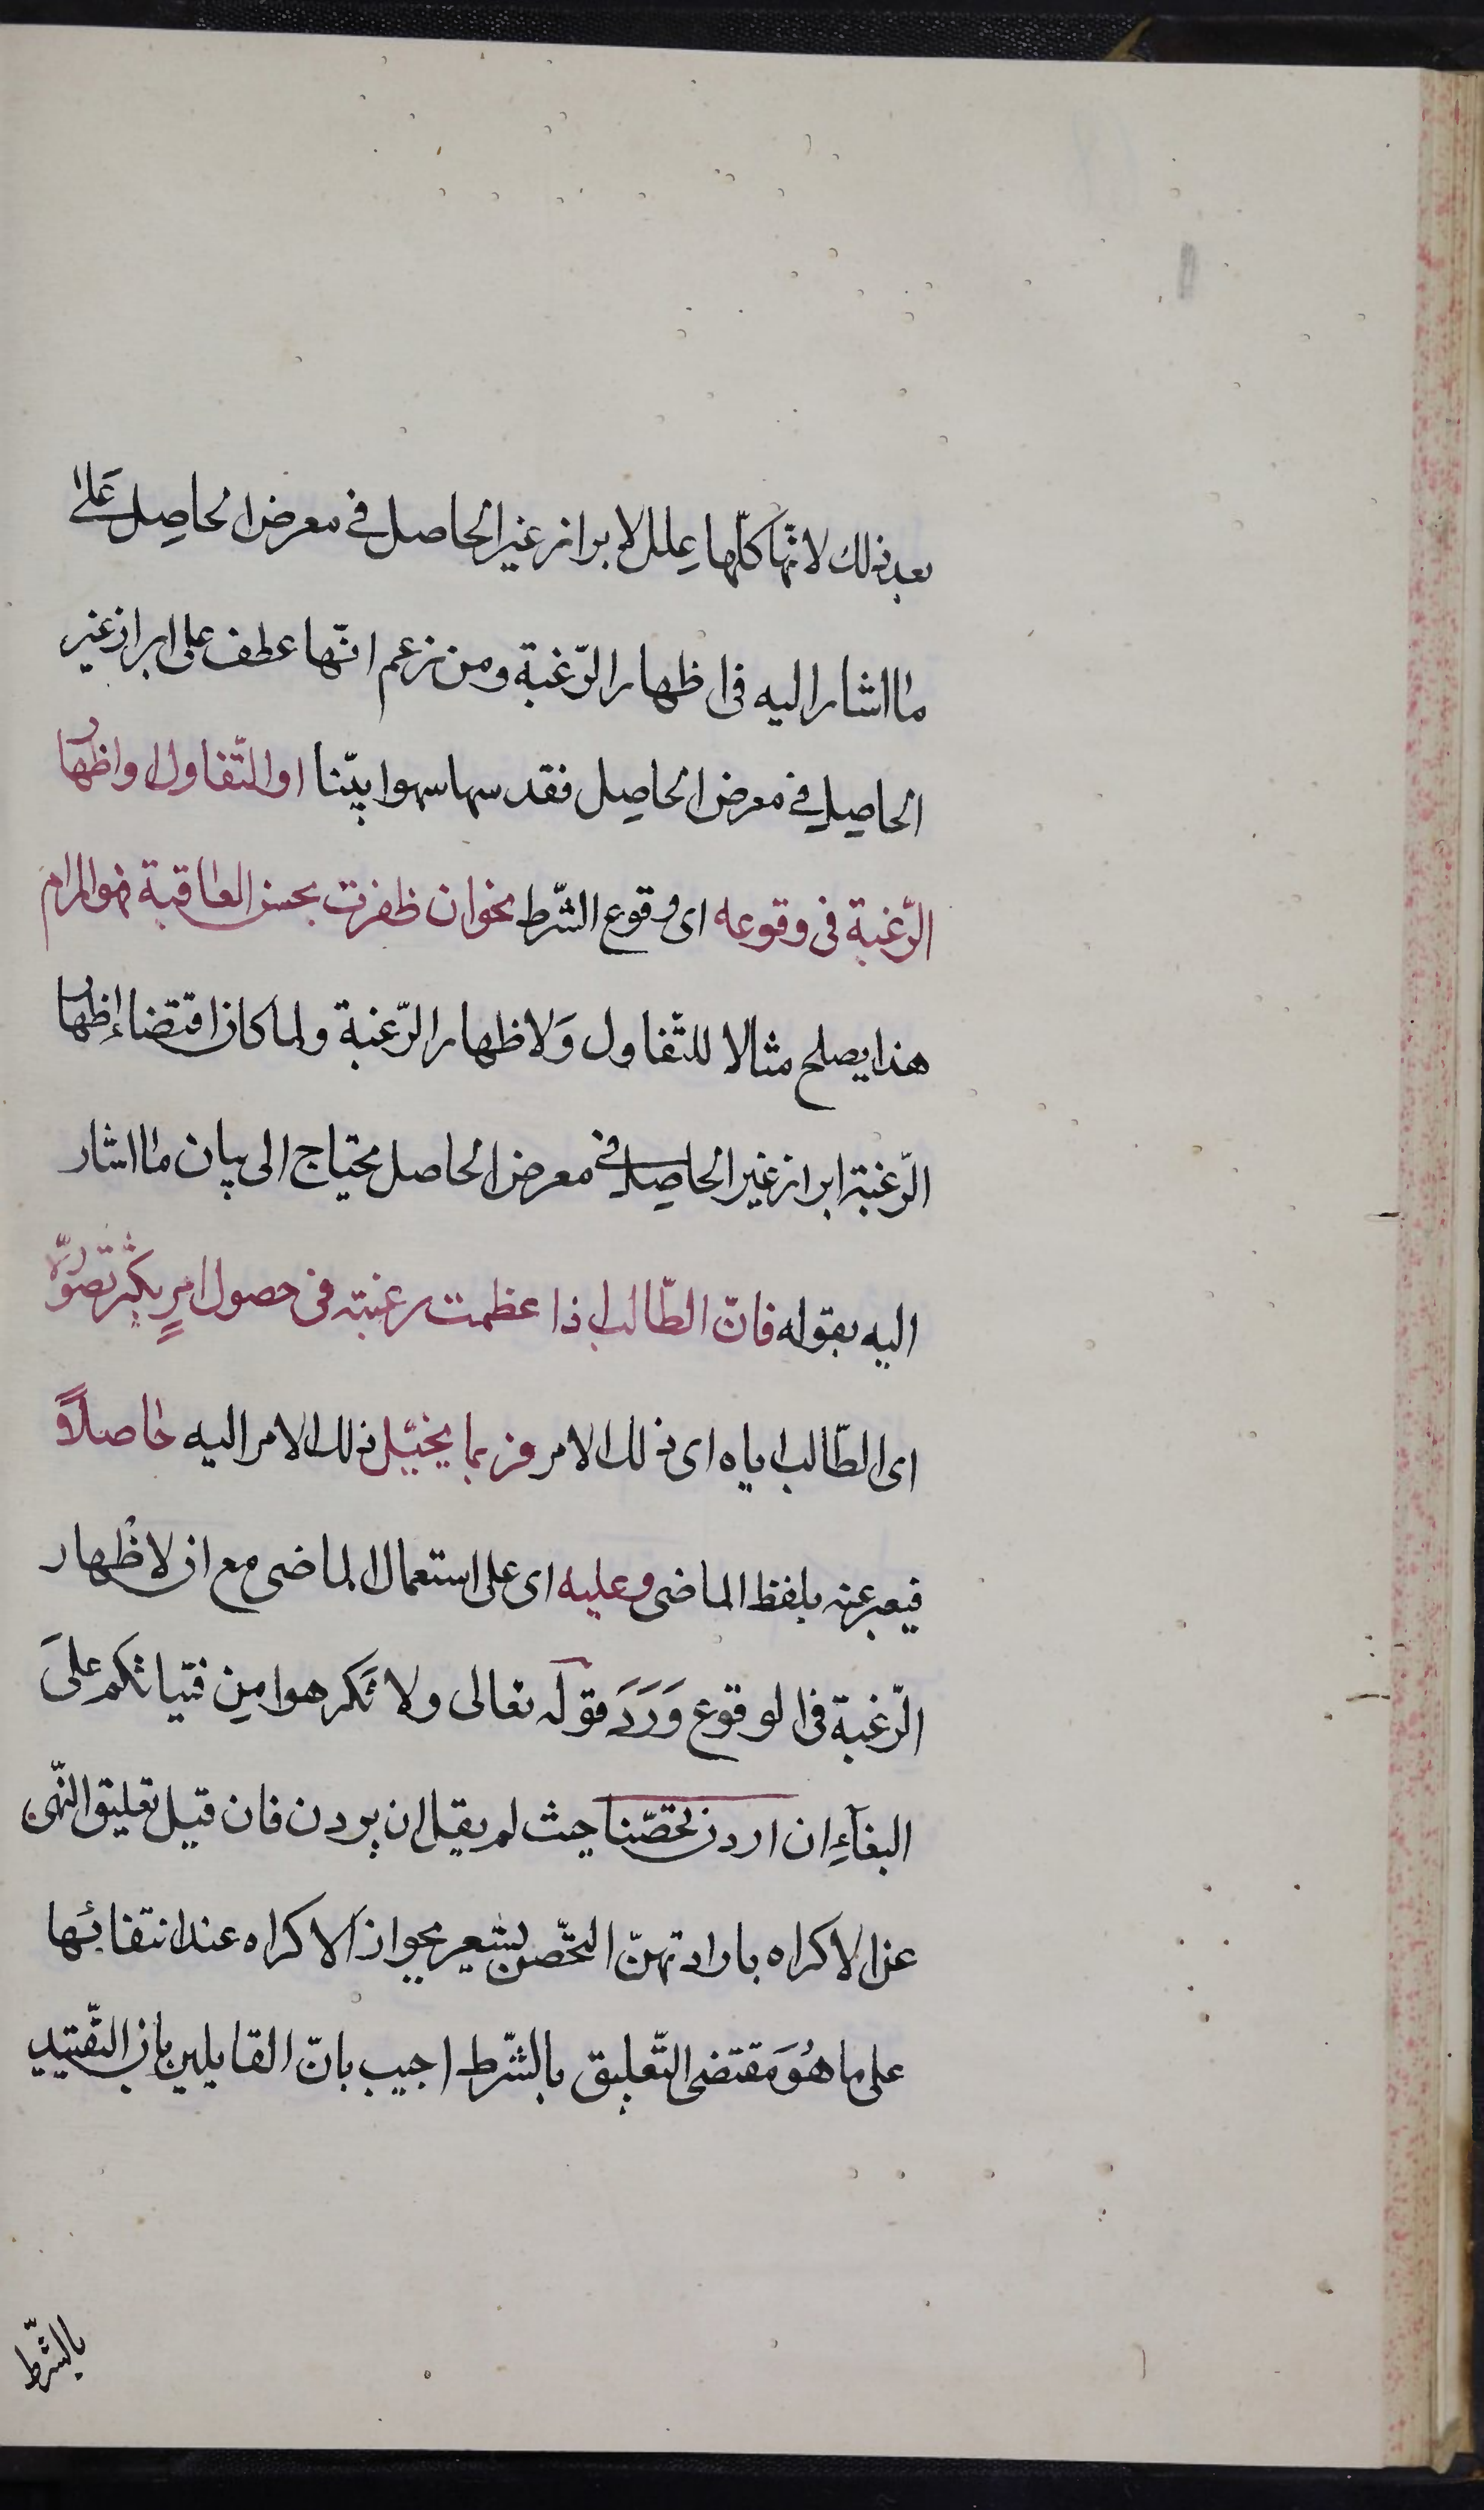 بعد ذلك لانّها كلّها عِلل لابراز غير الحاصل في معرض الحاصِل عَلىٰ
ما اشار اليه في اظهار الرّغبة ومن زعم انّها عطف على ابراز غير
الحاصِلِ في معرض الحاصِل فقد سها سهوا بيّنا او التّفاول او اظهار
الرّغبة في وقوعه اى وقوع الشّرط نحو ان ظفرت بحسن العاقبة فهو المرام
هذا يصلح مثالا للتّفاول وَلاظهار الرّغبة ولما كان اقتضاء إظهار
الرّغبة ابراز غير الحاصِل في معرض الحاصل محتاج الى بيان ما اشار
اليه بقوله فانّ الطّالب اذا عظمت رغبته في حصول امرٍ يكثر تصوّره
اى الطّالب اياه اى ذلك الامر فربما يخيّل ذلك الامر اليه حاصلاً
فيعبر عنه بلفظ الماضى وعليه اى على استعمال الماضى مع ان لاظهار
الرّغبة في الوقوع وَرَدَ قوله تعالى ولا تَكرهوا مِن فتياتكم علىَ
البغآءِ ان اردن تحصّنا حيث لم يقل ان يردن فان قيل تعليق النّهى
عن الاكراه بارادتهنّ التحصّن يشعر بجواز الاكراه عند انتفائها
على ما هُوَ مقتضى التّعليق بالشّرط اجيب بانّ القايلين بان التّقييد
بالشّرط